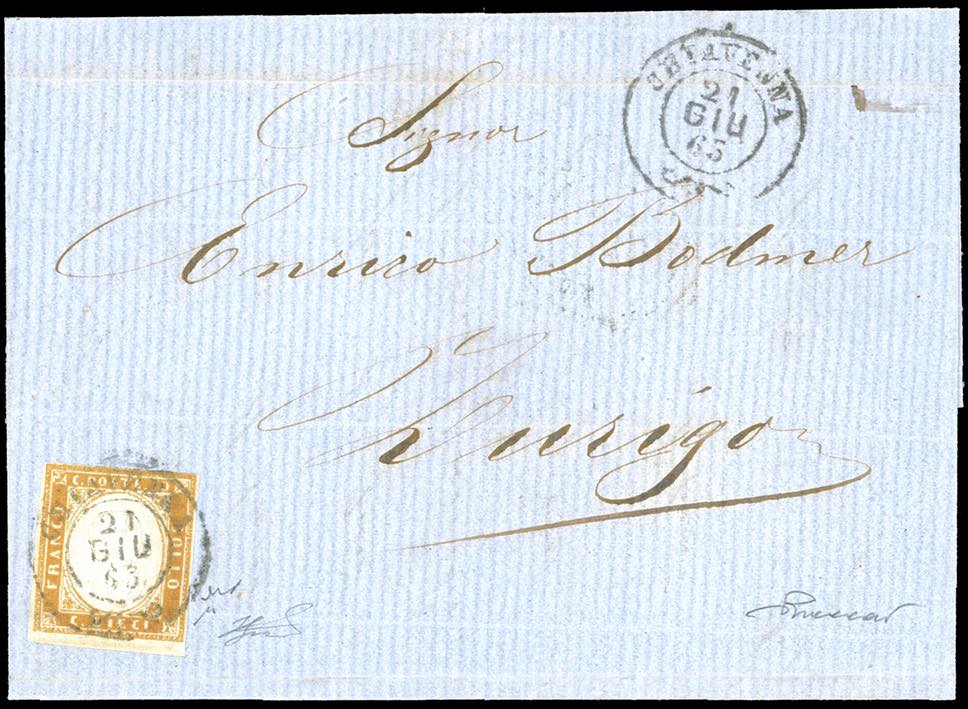 CHIAVENNA
21
GIU
63
Signor
Enrico Bodmer
Zurigo
C. POSTE
FRANCO
BOLLO
C. DIECI
21
GIU
63